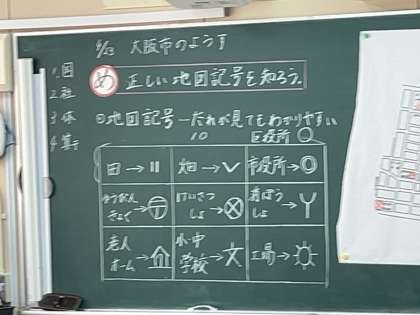 9/13 大阪市のようす
1.図
2 社
3 体
4 算
め 正しい地図記号を知ろう。
地図記号―だれが見てもわかりやすい
10
区役所 ○
田→॥
畑→∨
市役所→◎
ゆうびんきょく→〒
けいさつしょ→⊗
消ぼうしょ→Y
老人ホーム→
小・中学校→文
工場→